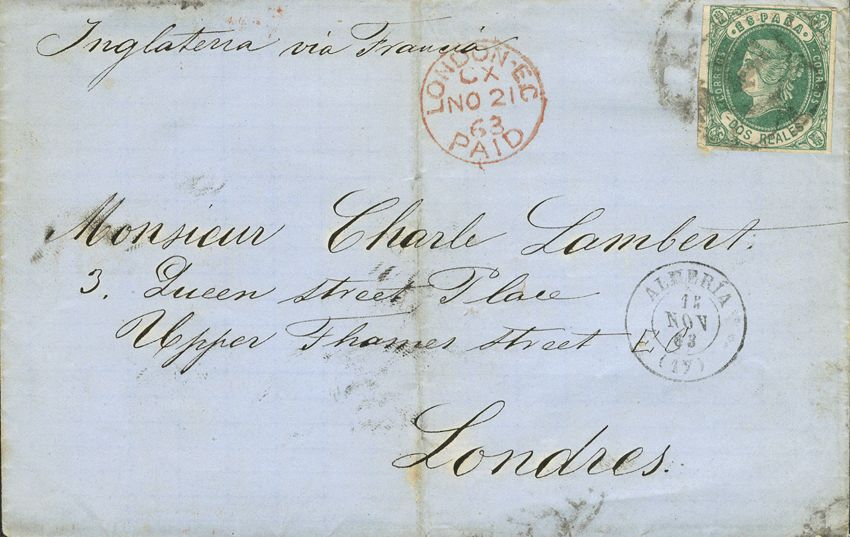 Inglaterra via Francia
LONDON·E.C
CX
NO 21
63
PAID
CORREOS
ESPAÑA
DOS REALES
Monsieur Charle Lambert.
3. Queen street Place
Upper Thames street E C
Londres.
ALMERÍA
15
NOV
63
(19)